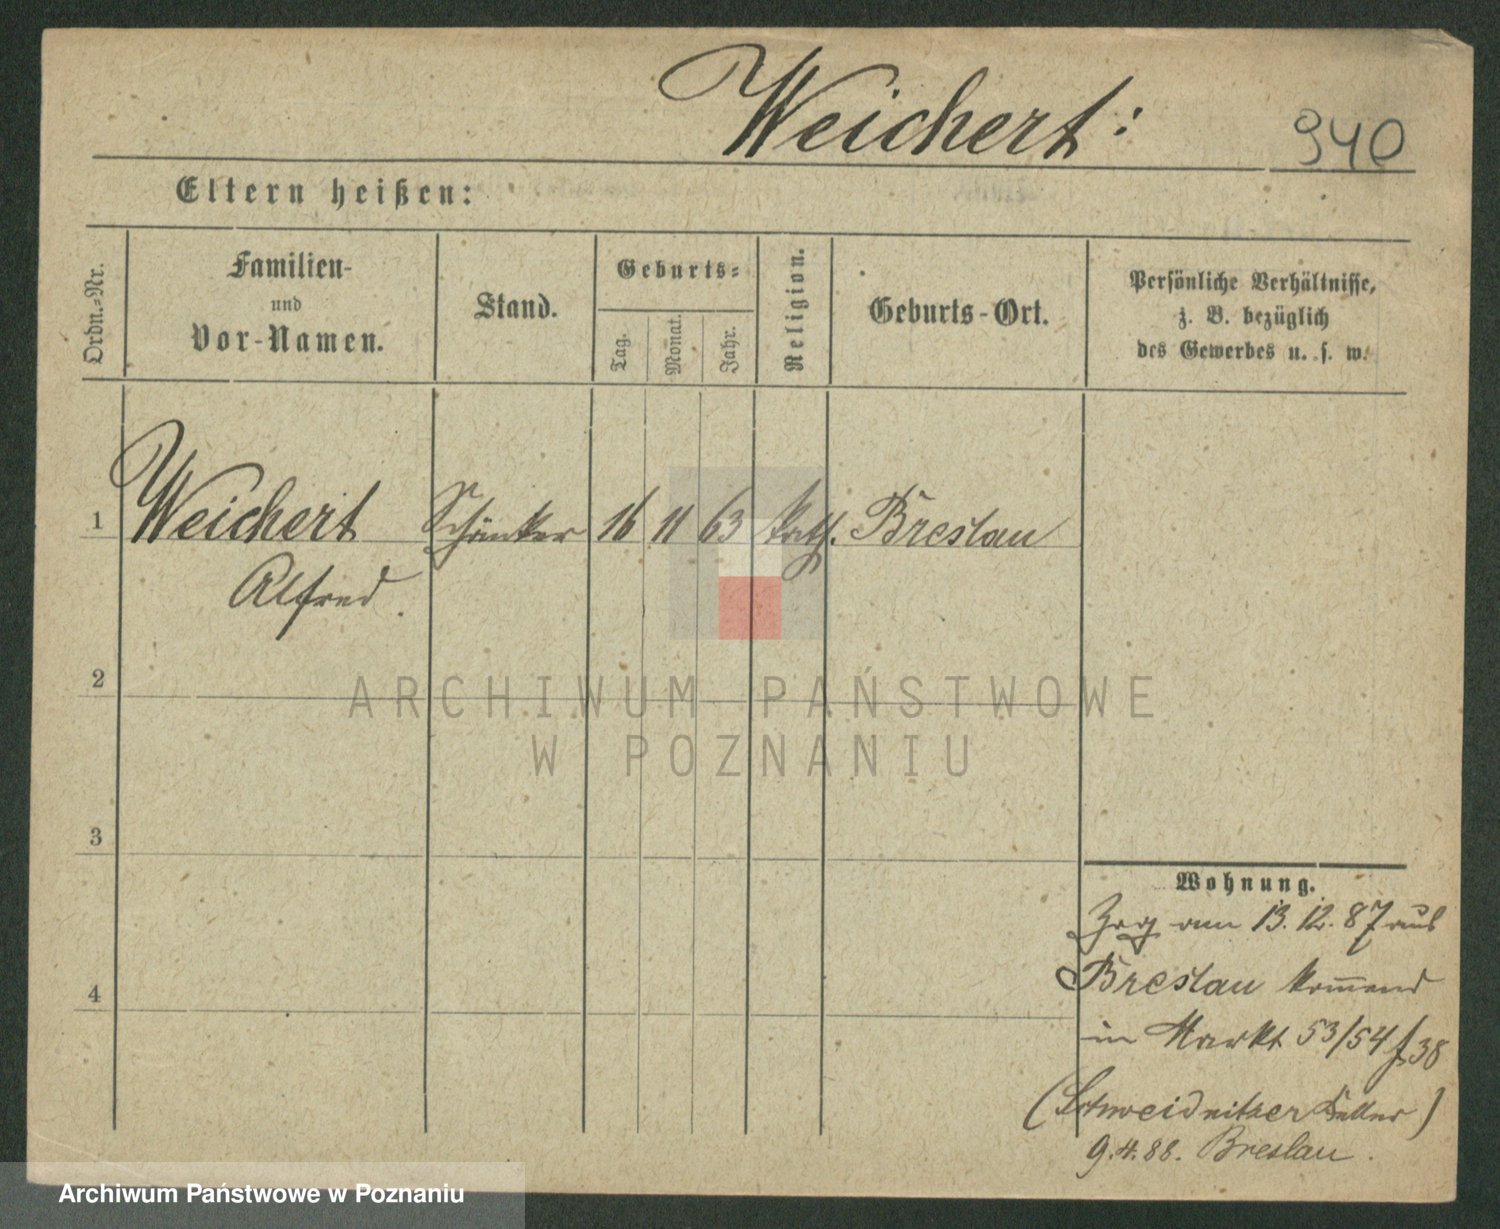 Weichert:
940
Eltern heißen:
Ordn.-Nr.
Familien-
und
Vor-Namen.
Stand.
Geburts-
Tag.
Monat.
Jahr.
Religion.
Geburts-Ort.
Persönliche Verhältnisse,
z. B. bezüglich
des Gewerbes u. s. w.
1 Weichert Schänker 16 11 63 kath. Breslau
Alfred.
2
3
4
Wohnung.
Zog am 13.12.87 aus
Breslau kommend
in Markt 53/54 f 38
(Schweidnitzer Keller)
9.4.88. Breslau.
ARCHIWUM PAŃSTWOWE
W POZNANIU
Archiwum Państwowe w Poznaniu